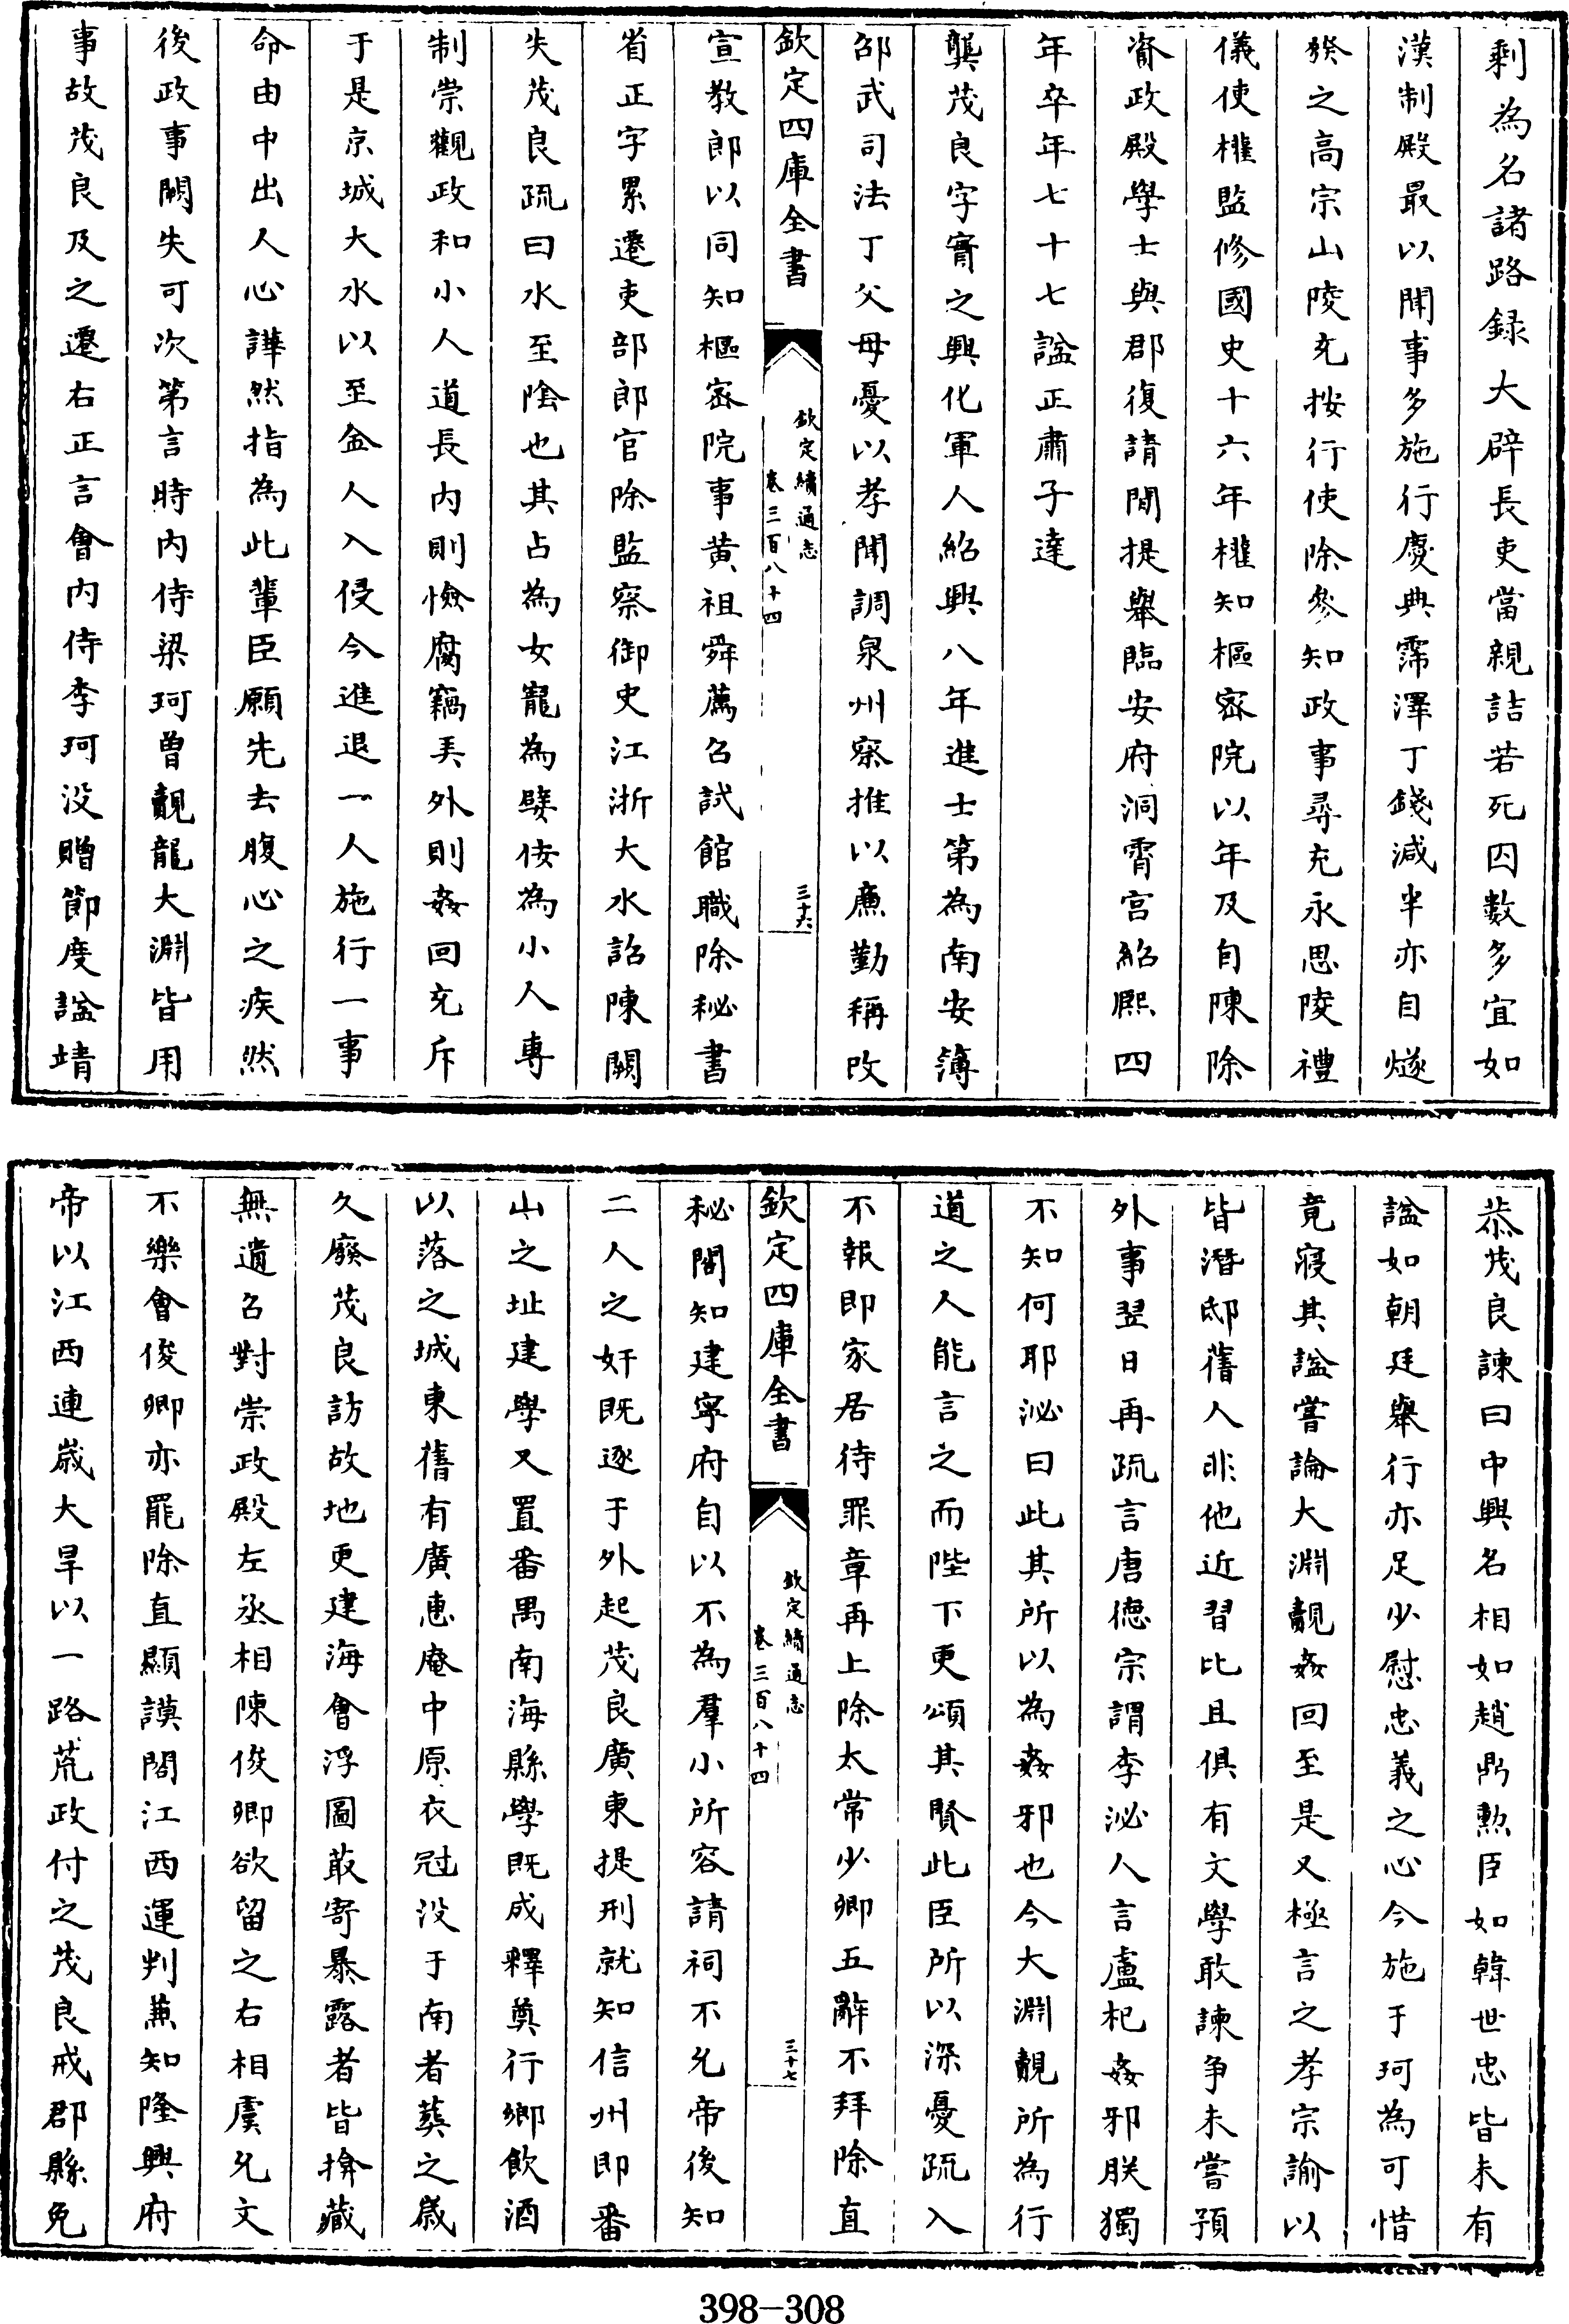 剩為名諸路録大辟長吏當親詰若死囚數多宜如
漢制殿最以聞事多施行慶典霈澤丁錢減半亦自燧
發之高宗山陵充按行使除參知政事尋充永思陵禮
儀使權監修國史十六年權知樞密院以年及自陳除
資政殿學士與郡復請閒提舉臨安府洞霄宮紹熙四
年卒年七十七諡正肅子達
龔茂良字實之興化軍人紹興八年進士第為南安簿
邵武司法丁父母憂以孝聞調泉州察推以廉勤稱改
欽定四庫全書
欽定續通志
卷三百八十四
三十六
宣教郎以同知樞密院事黃祖舜薦召試館職除秘書
省正字累遷吏部郎官除監察御史江浙大水詔陳闕
失茂良疏曰水至陰也其占為女寵為嬖佞為小人專
制崇觀政和小人道長內則憸腐竊弄外則姦回充斥
于是京城大水以至金人入侵今進退一人施行一事
命由中出人心譁然指為此輩臣願先去腹心之疾然
後政事闕失可次第言時內侍梁珂曾覿龍大淵皆用
事故茂良及之遷右正言會內侍李珂没贈節度諡靖
恭茂良諫曰中興名相如趙鼎勲臣如韓世忠皆未有
諡如朝廷舉行亦足少慰忠義之心今施于珂為可惜
竟寢其諡嘗論大淵覿姦回至是又極言之孝宗諭以
皆潛邸舊人非他近習比且俱有文學敢諫争未嘗預
外事翌日再疏言唐德宗謂李泌人言盧杞姦邪朕獨
不知何耶泌曰此其所以為姦邪也今大淵覿所為行
道之人能言之而陛下更頌其賢此臣所以深憂疏入
不報即家居待罪章再上除太常少卿五辭不拜除直
欽定四庫全書
欽定續通志
卷三百八十四
三十七
秘閣知建寧府自以不為羣小所容請祠不允帝後知
二人之奸既逐于外起茂良廣東提刑就知信州即番
山之址建學又置番禺南海縣學既成釋奠行鄉飲酒
以落之城東舊有廣惠庵中原衣冠没于南者葬之歲
久廢茂良訪故地更建海會浮圖菆寄暴露者皆揜藏
無遺召對崇政殿左丞相陳俊卿欲留之右相虞允文
不樂會俊卿亦罷除直顯謨閣江西運判兼知隆興府
帝以江西連歲大旱以一路荒政付之茂良戒郡縣免
398-308